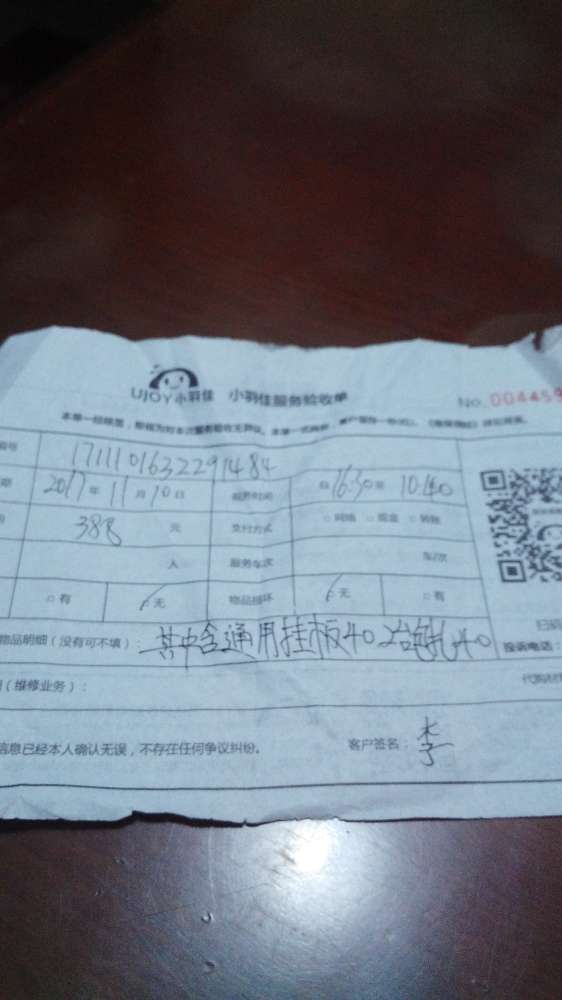 UJOY小羽佳 小羽佳服务验收单
No. 004459
编号 17111016322291484
2017年11月10日 服务时间 自16:30至
388元 支付方式 □网络 □现金 □转账
人 服务车次 车/次
□有 □无 物品损坏 □无 □有
物品明细（没有可不填）：其中含通用挂板40 40
投诉电话：
（维修业务）：
信息已经本人确认无误，不存在任何争议纠纷。 客户签名：李